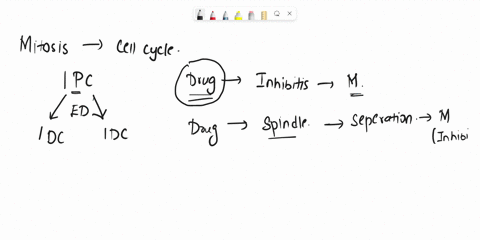 Mitosis → Cell cycle.
1 PC
ED
1 DC 1 DC
Drug → Inhibitis → M.
Drug → Spindle. → Seperation → M
(Inhibi